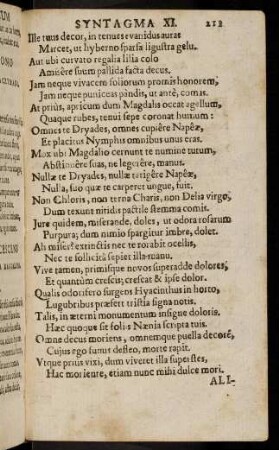 SYNTAGMA XI. 213
Ille tuus decor, in tenues evanidus auras
Marcet, ut hyberno sparsa ligustra gelu.
Aut ubi curvato regalia lilia colo
Amisêre suum pallida facta decus.
Jam neque vivacem foliorum promis honorem,
Jam neque puniceas pandis, ut antè, comas.
At priùs, apricum dum Magdalis occat agellum,
Quaque rubes, tenui sepe coronat humum:
Omnes te Dryades, omnes cupiêre Napææ,
Et placitus Nymphis omnibus unus eras.
Mox ubi Magdalio cernunt te numine tutum,
Abstinuêre suas, ne legerêre, manus.
Nullæ te Dryades, nullæ tetigêre Napææ,
Nulla, suo quæ te carperet ungue, fuit.
Non Chloris, non terna Charis, non Delia virgo,
Dum texunt nitidis pactile stemma comis.
Jure quidem, miserande, doles, ut odora rosarum
Purpura; dum nimio spargitur imbre, dolet.
Ah miser! extinctis nec te rorabit ocellis,
Nec te sollicitâ sepiet illa manu.
Vive tamen, primisque novos superadde dolores,
Et quantùm crescis; crescat & ipse dolor.
Qualis odorifero surgens Hyacinthus in horto,
Lugubribus præfert tristia signa notis.
Talis, in æterni monumentum insigne doloris.
Hæc quoque sit foliis Nænia scripta tuis.
Omne decus moriens, omnemque puella decorē,
Cujus ego sum destero, morte rapit.
Utque prius vixi, dum viveret illa superstes,
Hac moriente, etiam nunc mihi dulce mori.
ALI-